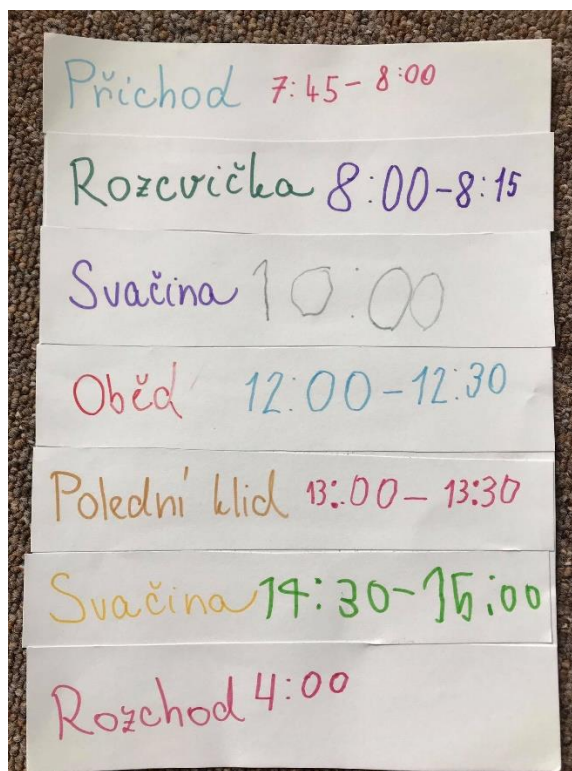 Příchod 7:45 - 8:00
Rozcvička 8:00-8:15
Svačina 10:00
Oběd 12:00-12:30
Polední klid 13:00 - 13:30
Svačina 14:30-15:00
Rozchod 4:00